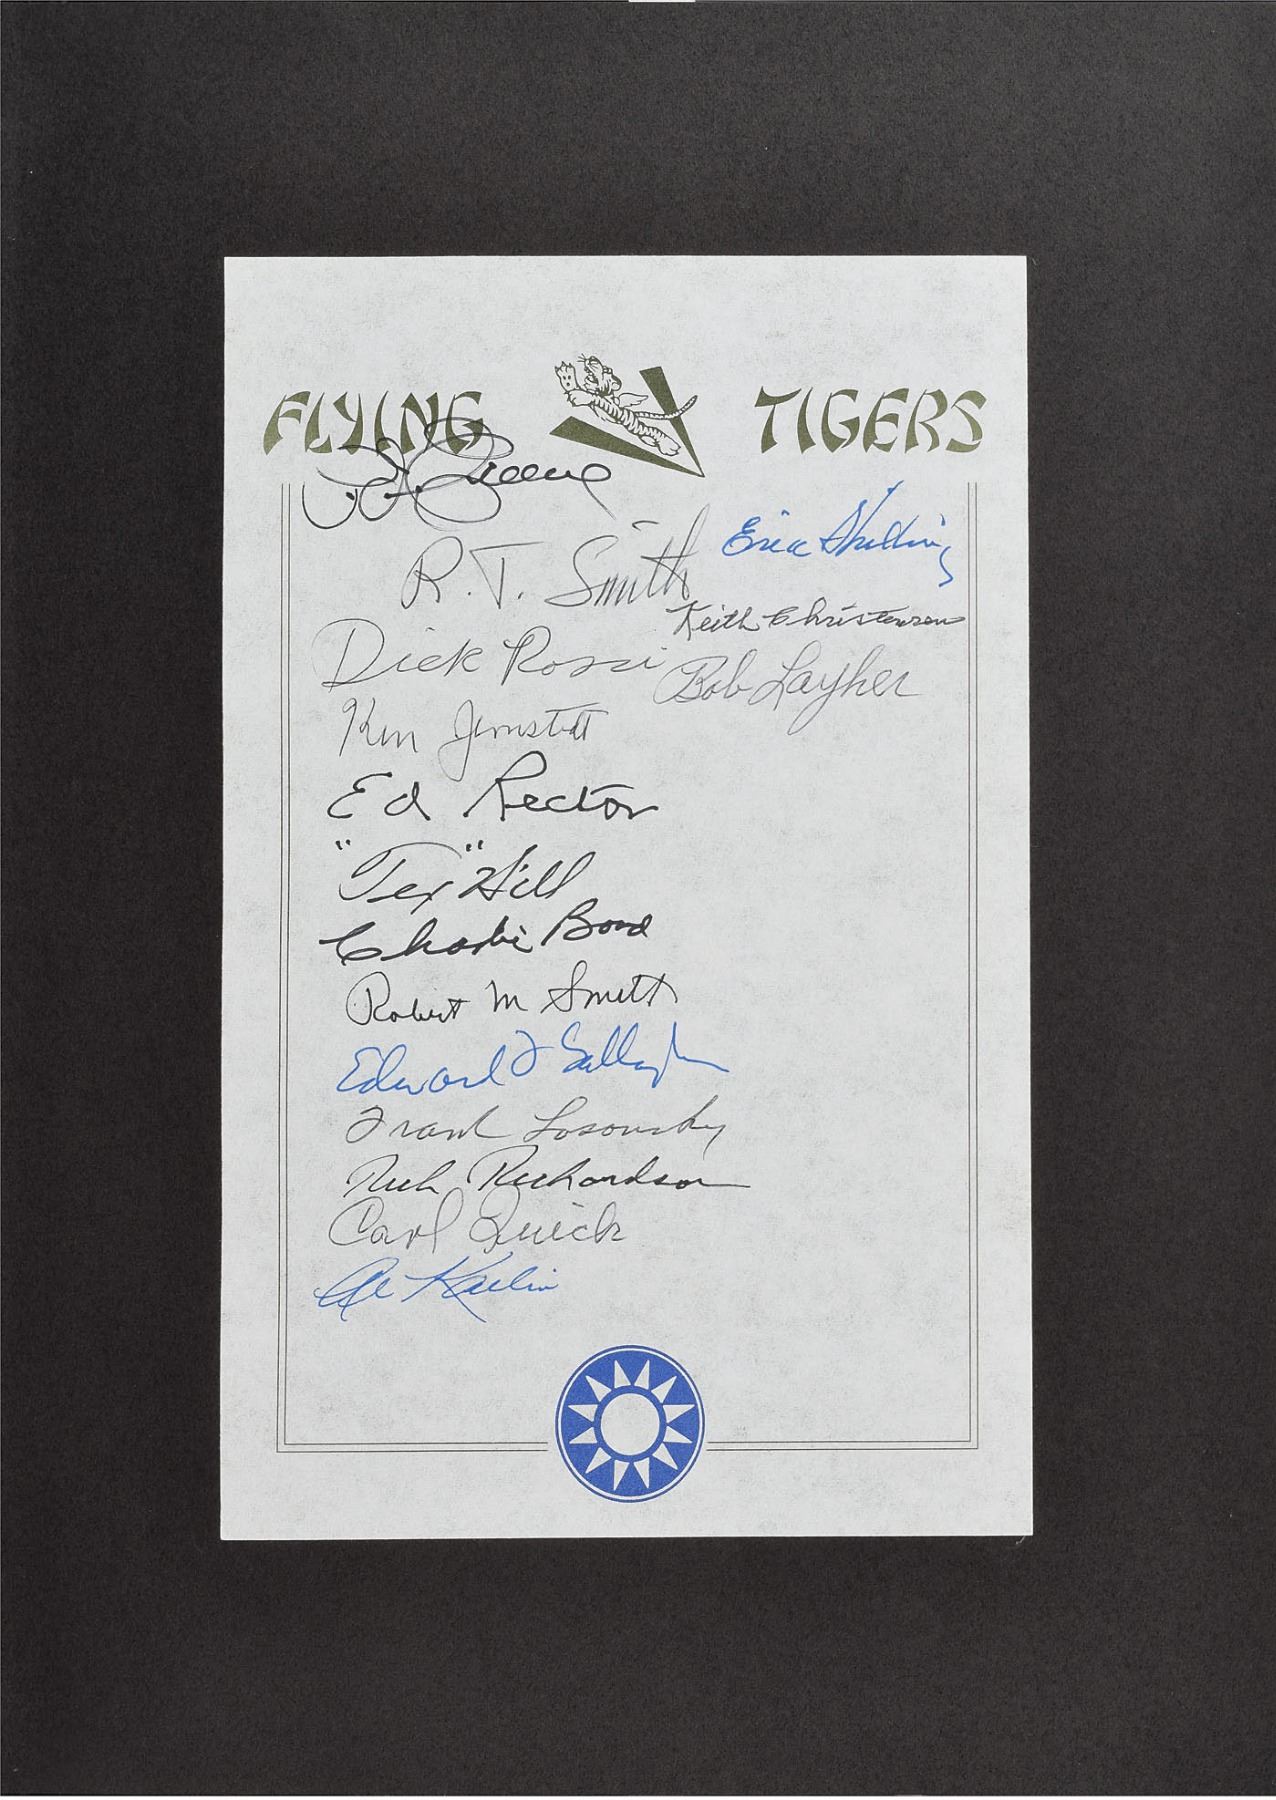 FLYING TIGERS
R.T. Smith
Eric Shilling
Keith Christensen
Dick Rossi
Bob Layher
Ken Jernstedt
Ed Rector
"Tex" Hill
Charlie Bond
Robert M Smith
Edward F Gallagher
Frank Losonsky
Rich Richardson
Carl Quick